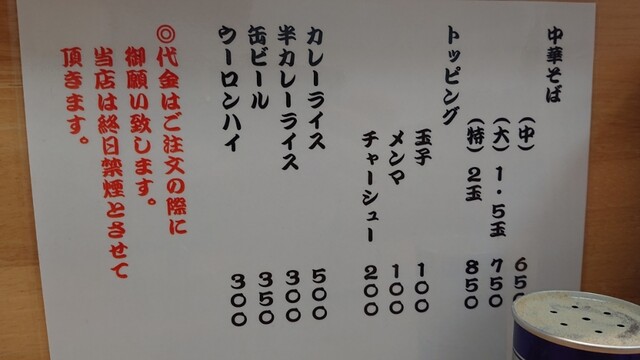 中華そば
(中) 650
(大) 1.5玉 750
(特) 2玉 850
トッピング
玉子 100
メンマ 100
チャーシュー 200
カレーライス 500
半カレーライス 300
缶ビール 350
ウーロンハイ 300
◎代金はご注文の際に
御願い致します。
当店は終日禁煙とさせて
頂きます。